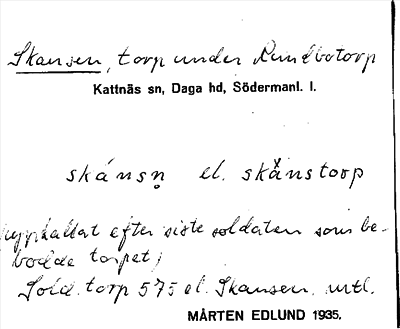 Skansen, torp under Rundbotorp
Kattnäs sn, Daga hd, Södermanl. l.
skánsn̥ el. skånstorp
uppkallat efter siste soldaten som be-
bodde torpet,
Sold. torp 575 el. Skansen. mtl.
MÅRTEN EDLUND 1935.